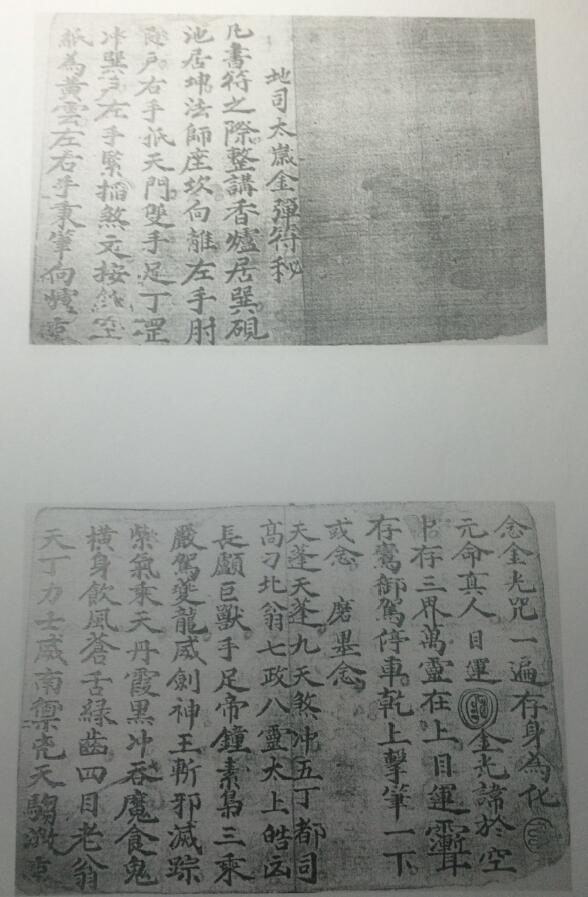 地司太歲金彈符秘
凡書符之際整講香爐居巽硯
池居坤法師座坎向離左手肘
戶右手抵天門雙手足丁罡
冲巽戶左手緊掐煞文按空
紙為黃雲左右手秉筆向
念金光咒一遍存身為化
元命真人目運金光諦於空
中存三界萬靈在上目運
存鸞御駕停車乾上擊筆一下
或念 磨墨念
天蓬天蓬九天煞冲五丁都司
高刁北翁七政八靈太上皓凶
長顱巨獸手足帝鐘素梟三乘
嚴駕夔龍威劍神王斬邪滅踪
紫氣乘天丹霞黑冲吞魔食鬼
橫身飲風蒼舌綠齒四目老翁
天丁力士威南禦天騶激